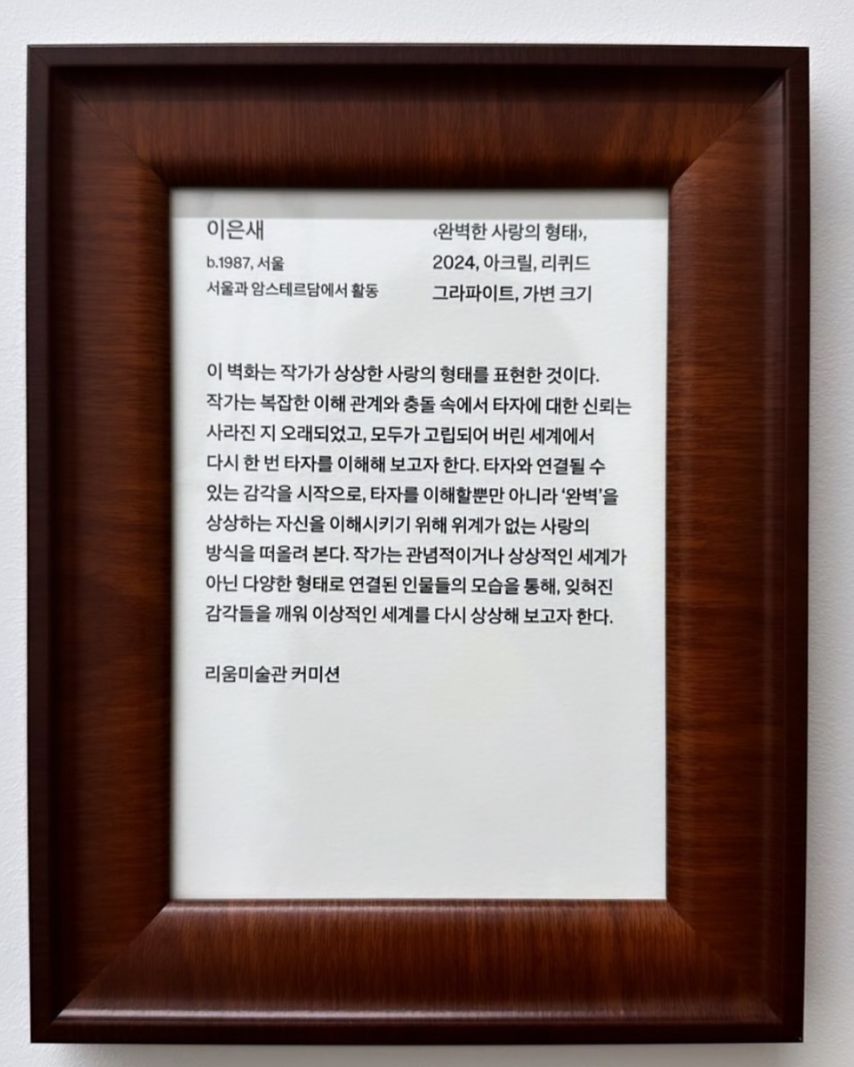 이은새
b.1987, 서울
서울과 암스테르담에서 활동
‹완벽한 사랑의 형태›,
2024, 아크릴, 리퀴드
그라파이트, 가변 크기
이 벽화는 작가가 상상한 사랑의 형태를 표현한 것이다.
작가는 복잡한 이해 관계와 충돌 속에서 타자에 대한 신뢰는
사라진 지 오래되었고, 모두가 고립되어 버린 세계에서
다시 한 번 타자를 이해해 보고자 한다. 타자와 연결될 수
있는 감각을 시작으로, 타자를 이해할뿐만 아니라 ‘완벽’을
상상하는 자신을 이해시키기 위해 위계가 없는 사랑의
방식을 떠올려 본다. 작가는 관념적이거나 상상적인 세계가
아닌 다양한 형태로 연결된 인물들의 모습을 통해, 잊혀진
감각들을 깨워 이상적인 세계를 다시 상상해 보고자 한다.
리움미술관 커미션